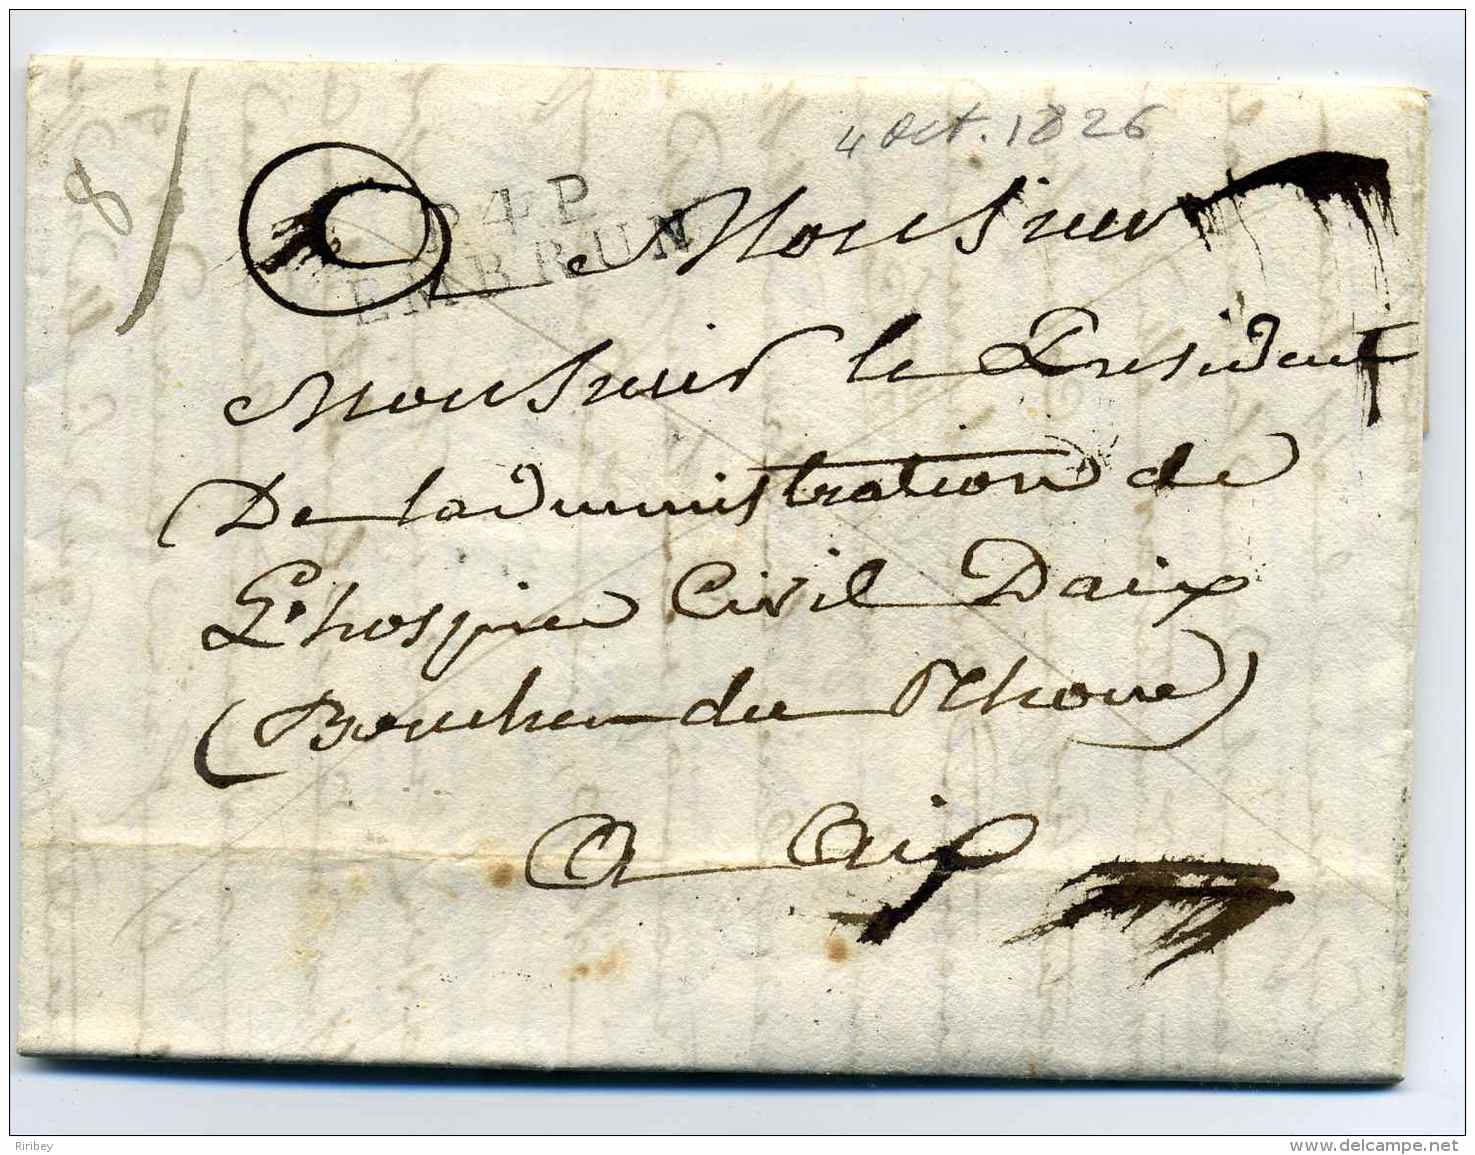 4 Oct. 1826
8
P4P
EMBRUN
Monsieur
Monsieur le President
De ladministration de
L'hospice Civil Daix
(Bouches du Rhone)
A Aix
Ribey
www.delcampe.net